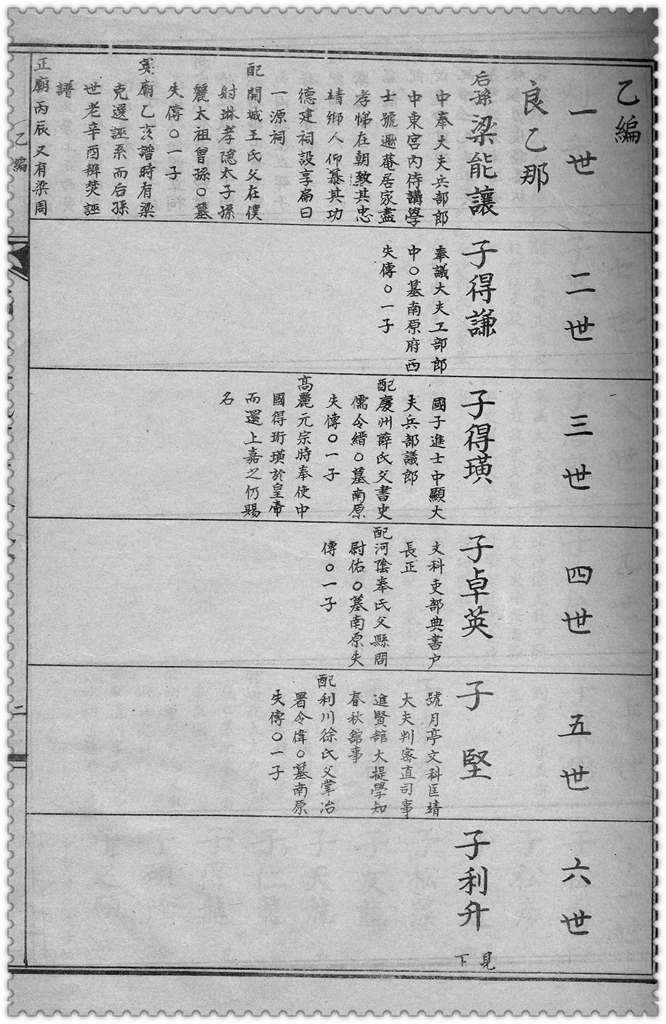 乙編
一世
良乙那
后孫梁能讓
中奉大夫兵部郎
中東宮內侍講學
士號遯菴居家盡
孝悌在朝致其忠
靖鄉人仰慕其功
德建祠設享扁曰
一源祠
配開城王氏父在僕
射琳孝隱太子孫
麗太祖曾孫○墓
失傳○一子
英廟乙亥譜時有梁
克選誣系而后孫
世老辛酉辨焚誣
譜
正廟丙辰又有梁周
二世
子得謙
奉議大夫工部郎
中○墓南原府西
失傳○一子
三世
子得璜
國子進士中顯大
夫兵部議郎
配慶州薛氏父書史
儒令縉○墓南原
失傳○一子
高麗元宗時奉使中
國得珩璜於皇帝
而還上嘉之仍賜
名
四世
子卓英
文科吏部典書户
長正
配河陰奉氏父縣問
尉佑○墓南原失
傳○一子
五世
子堅
號月亭文科匡靖
大夫判密直司事
進賢館大提學知
春秋館事
配利川徐氏父掌冶
署令偉○墓南原
失傳○一子
六世
子利升
見
下
乙編
二